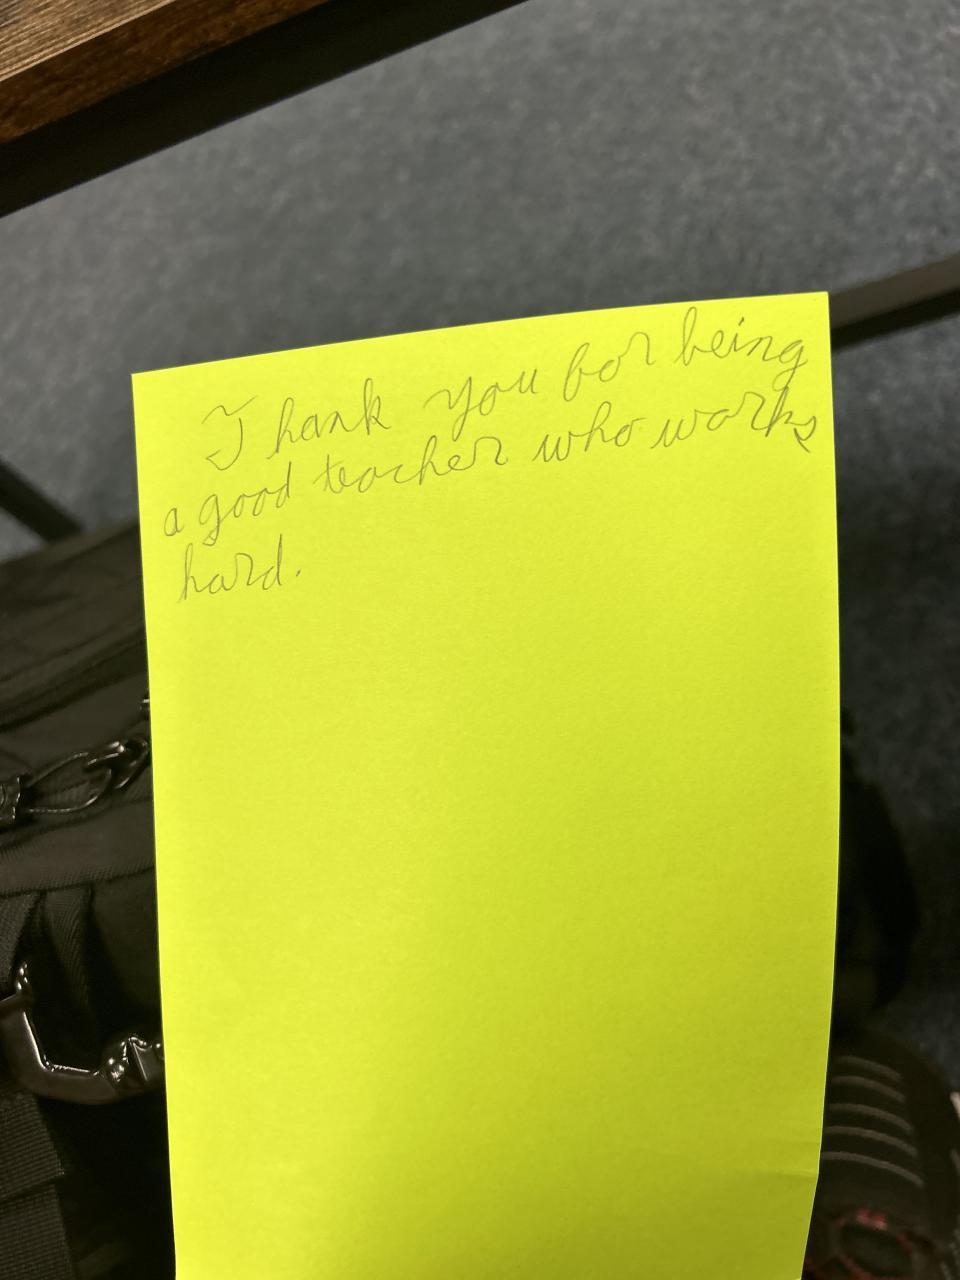 Thank you for being
a good teacher who works
hard.